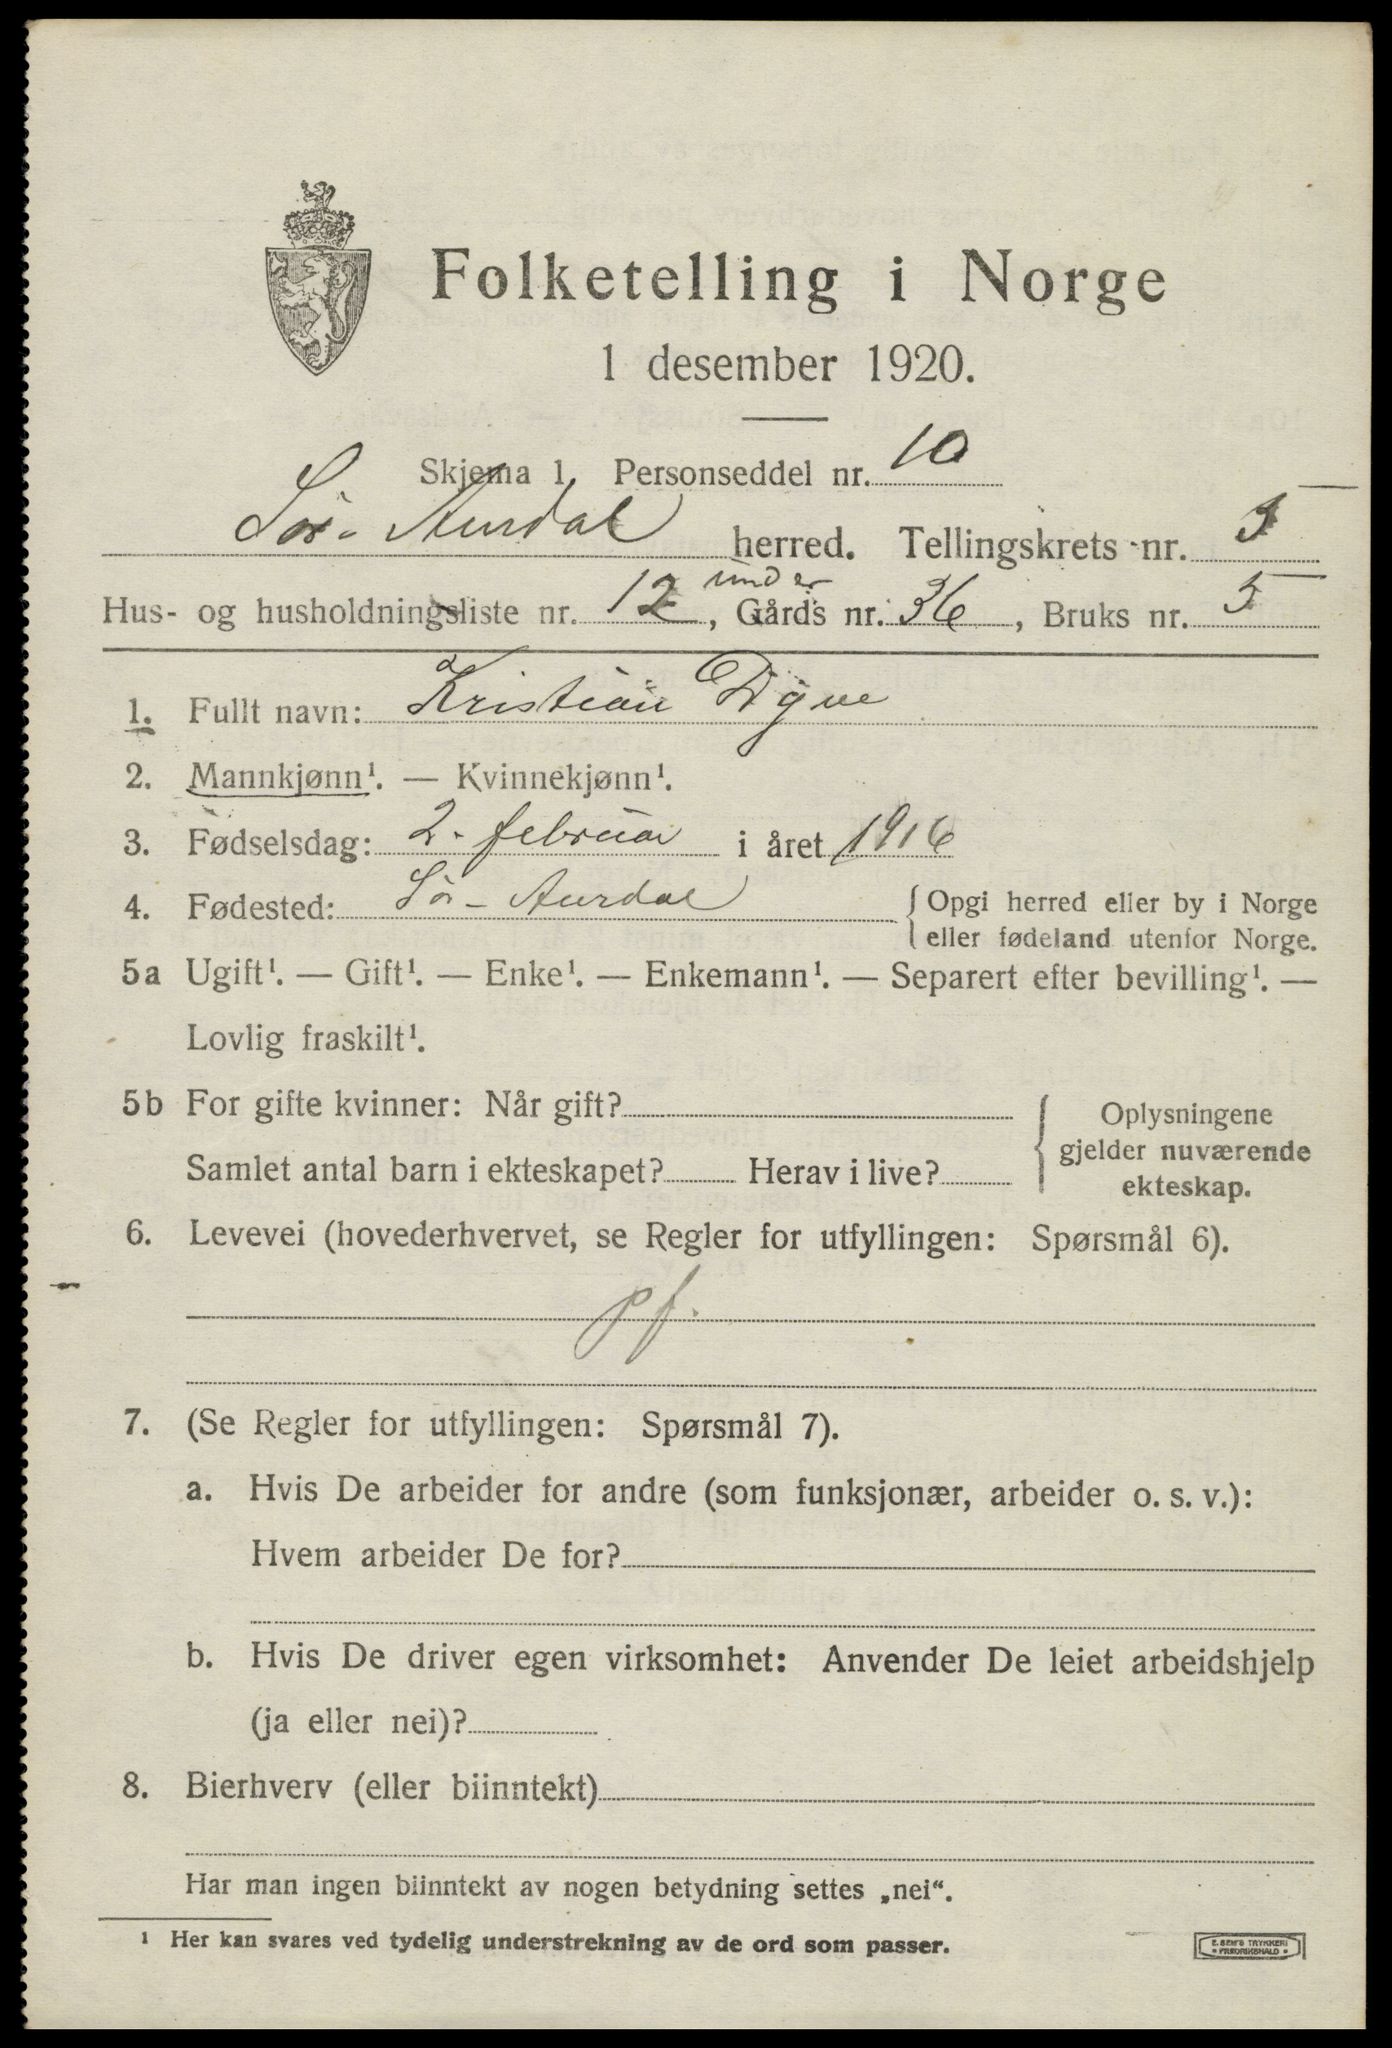 Folketelling i Norge
1 desember 1920.
Skjema 1. Personseddel nr. 10
Sør-Aurdal herred. Tellingskrets nr. 5
under
Hus- og husholdningsliste nr. 12, Gårds nr. 36, Bruks nr. 5
1. Fullt navn: Kristian Dyve
2. Mannkjønn¹. — Kvinnekjønn¹.
3. Fødselsdag: 2. februar i året 1916
4. Fødested: Sør-Aurdal { Opgi herred eller by i Norge
eller fødeland utenfor Norge.
5a Ugift¹. — Gift¹. — Enke¹. — Enkemann¹. — Separert efter bevilling¹. —
Lovlig fraskilt¹.
5b For gifte kvinner: Når gift?
Samlet antal barn i ekteskapet? Herav i live?
{ Oplysningene
gjelder nuværende
ekteskap.
6. Levevei (hovederhvervet, se Regler for utfyllingen: Spørsmål 6).
pf.
7. (Se Regler for utfyllingen: Spørsmål 7).
a. Hvis De arbeider for andre (som funksjonær, arbeider o. s. v.):
Hvem arbeider De for?
b. Hvis De driver egen virksomhet: Anvender De leiet arbeidshjelp
(ja eller nei)?
8. Bierhverv (eller biinntekt)
Har man ingen biinntekt av nogen betydning settes „nei“.
¹ Her kan svares ved tydelig understrekning av de ord som passer.
E. SEM'S TRYKKERI
• FREDRIKSHALD •